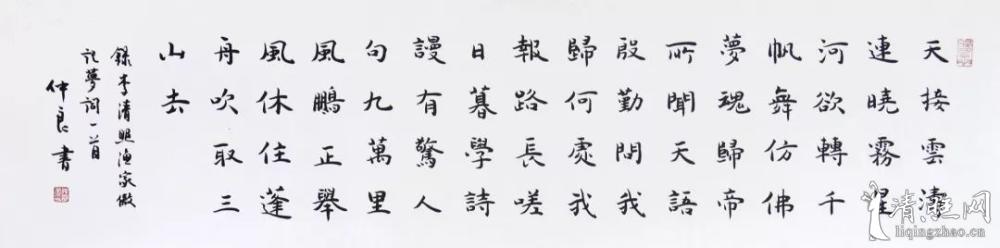 天接雲濤
連曉霧星
河欲轉千
帆舞仿佛
夢魂歸帝
所聞天語
殷勤問我
歸何處我
報路長嗟
日暮學詩
謾有驚人
句九萬里
風鵬正舉
風休住蓬
舟吹取三
山去
錄李清照漁家傲
記夢詞一首
仲良書
清照网
liqingzhao.cn